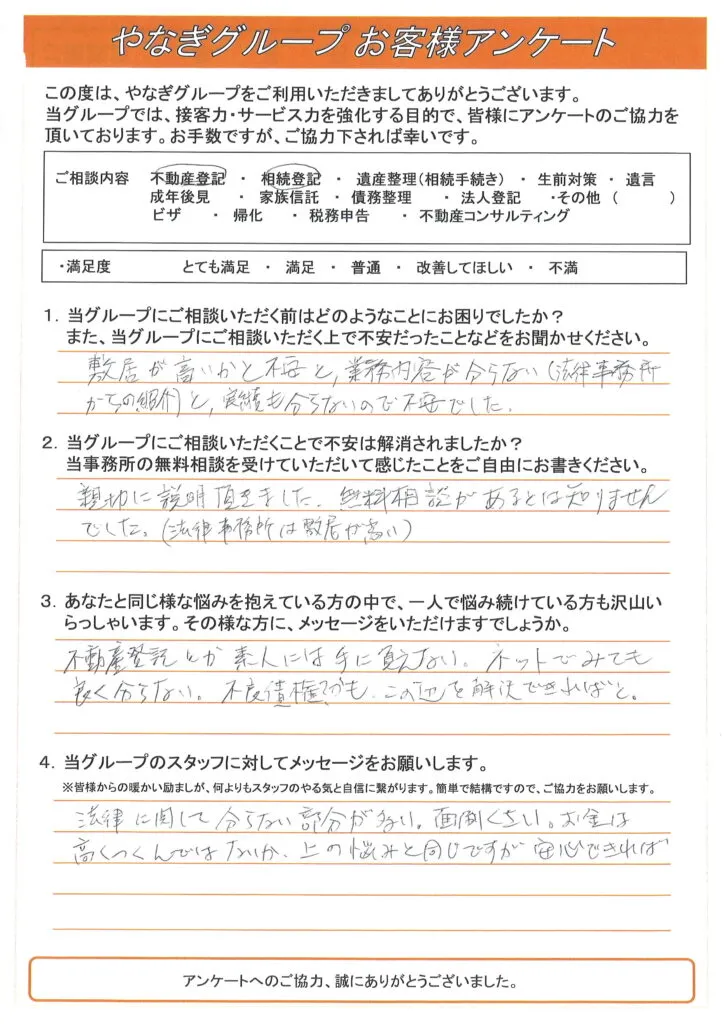 やなぎグループ お客様アンケート
この度は、やなぎグループをご利用いただきましてありがとうございます。
当グループでは、接客力・サービス力を強化する目的で、皆様にアンケートのご協力を
頂いております。お手数ですが、ご協力下されば幸いです。
ご相談内容 不動産登記 ・ 相続登記 ・ 遺産整理(相続手続き) ・ 生前対策 ・ 遺言
成年後見 ・ 家族信託 ・ 債務整理 ・ 法人登記 ・その他 ( )
ビザ ・ 帰化 ・ 税務申告 ・ 不動産コンサルティング
・満足度 とても満足 ・ 満足 ・ 普通 ・ 改善してほしい ・ 不満
1. 当グループにご相談いただく前はどのようなことにお困りでしたか？
また、当グループにご相談いただく上で不安だったことなどをお聞かせください。
敷居が高いかと不安と,業務内容が分らない(法律事務所
からの紹介)と,実績も分らないので不安でした.
2. 当グループにご相談いただくことで不安は解消されましたか？
当事務所の無料相談を受けていただいて感じたことをご自由にお書きください。
親切に説明頂きました. 無料相談があるとは知りません
でした。(法律事務所は敷居が高い)
3. あなたと同じ様な悩みを抱えている方の中で、一人で悩み続けている方も沢山い
らっしゃいます。その様な方に、メッセージをいただけますでしょうか。
不動産登記とか素人には手に負えない。ネットでみても
良く分らない。不良債権 も.この辺を解決できればと。
4. 当グループのスタッフに対してメッセージをお願いします。
※皆様からの暖かい励ましが、何よりもスタッフのやる気と自信に繋がります。簡単で結構ですので、ご協力をお願いします。
法律に関して分らない部分が多い。面倒くさい。お金は
高くつくんではないか.上の悩みと同じですが安心できれば
アンケートへのご協力、誠にありがとうございました。